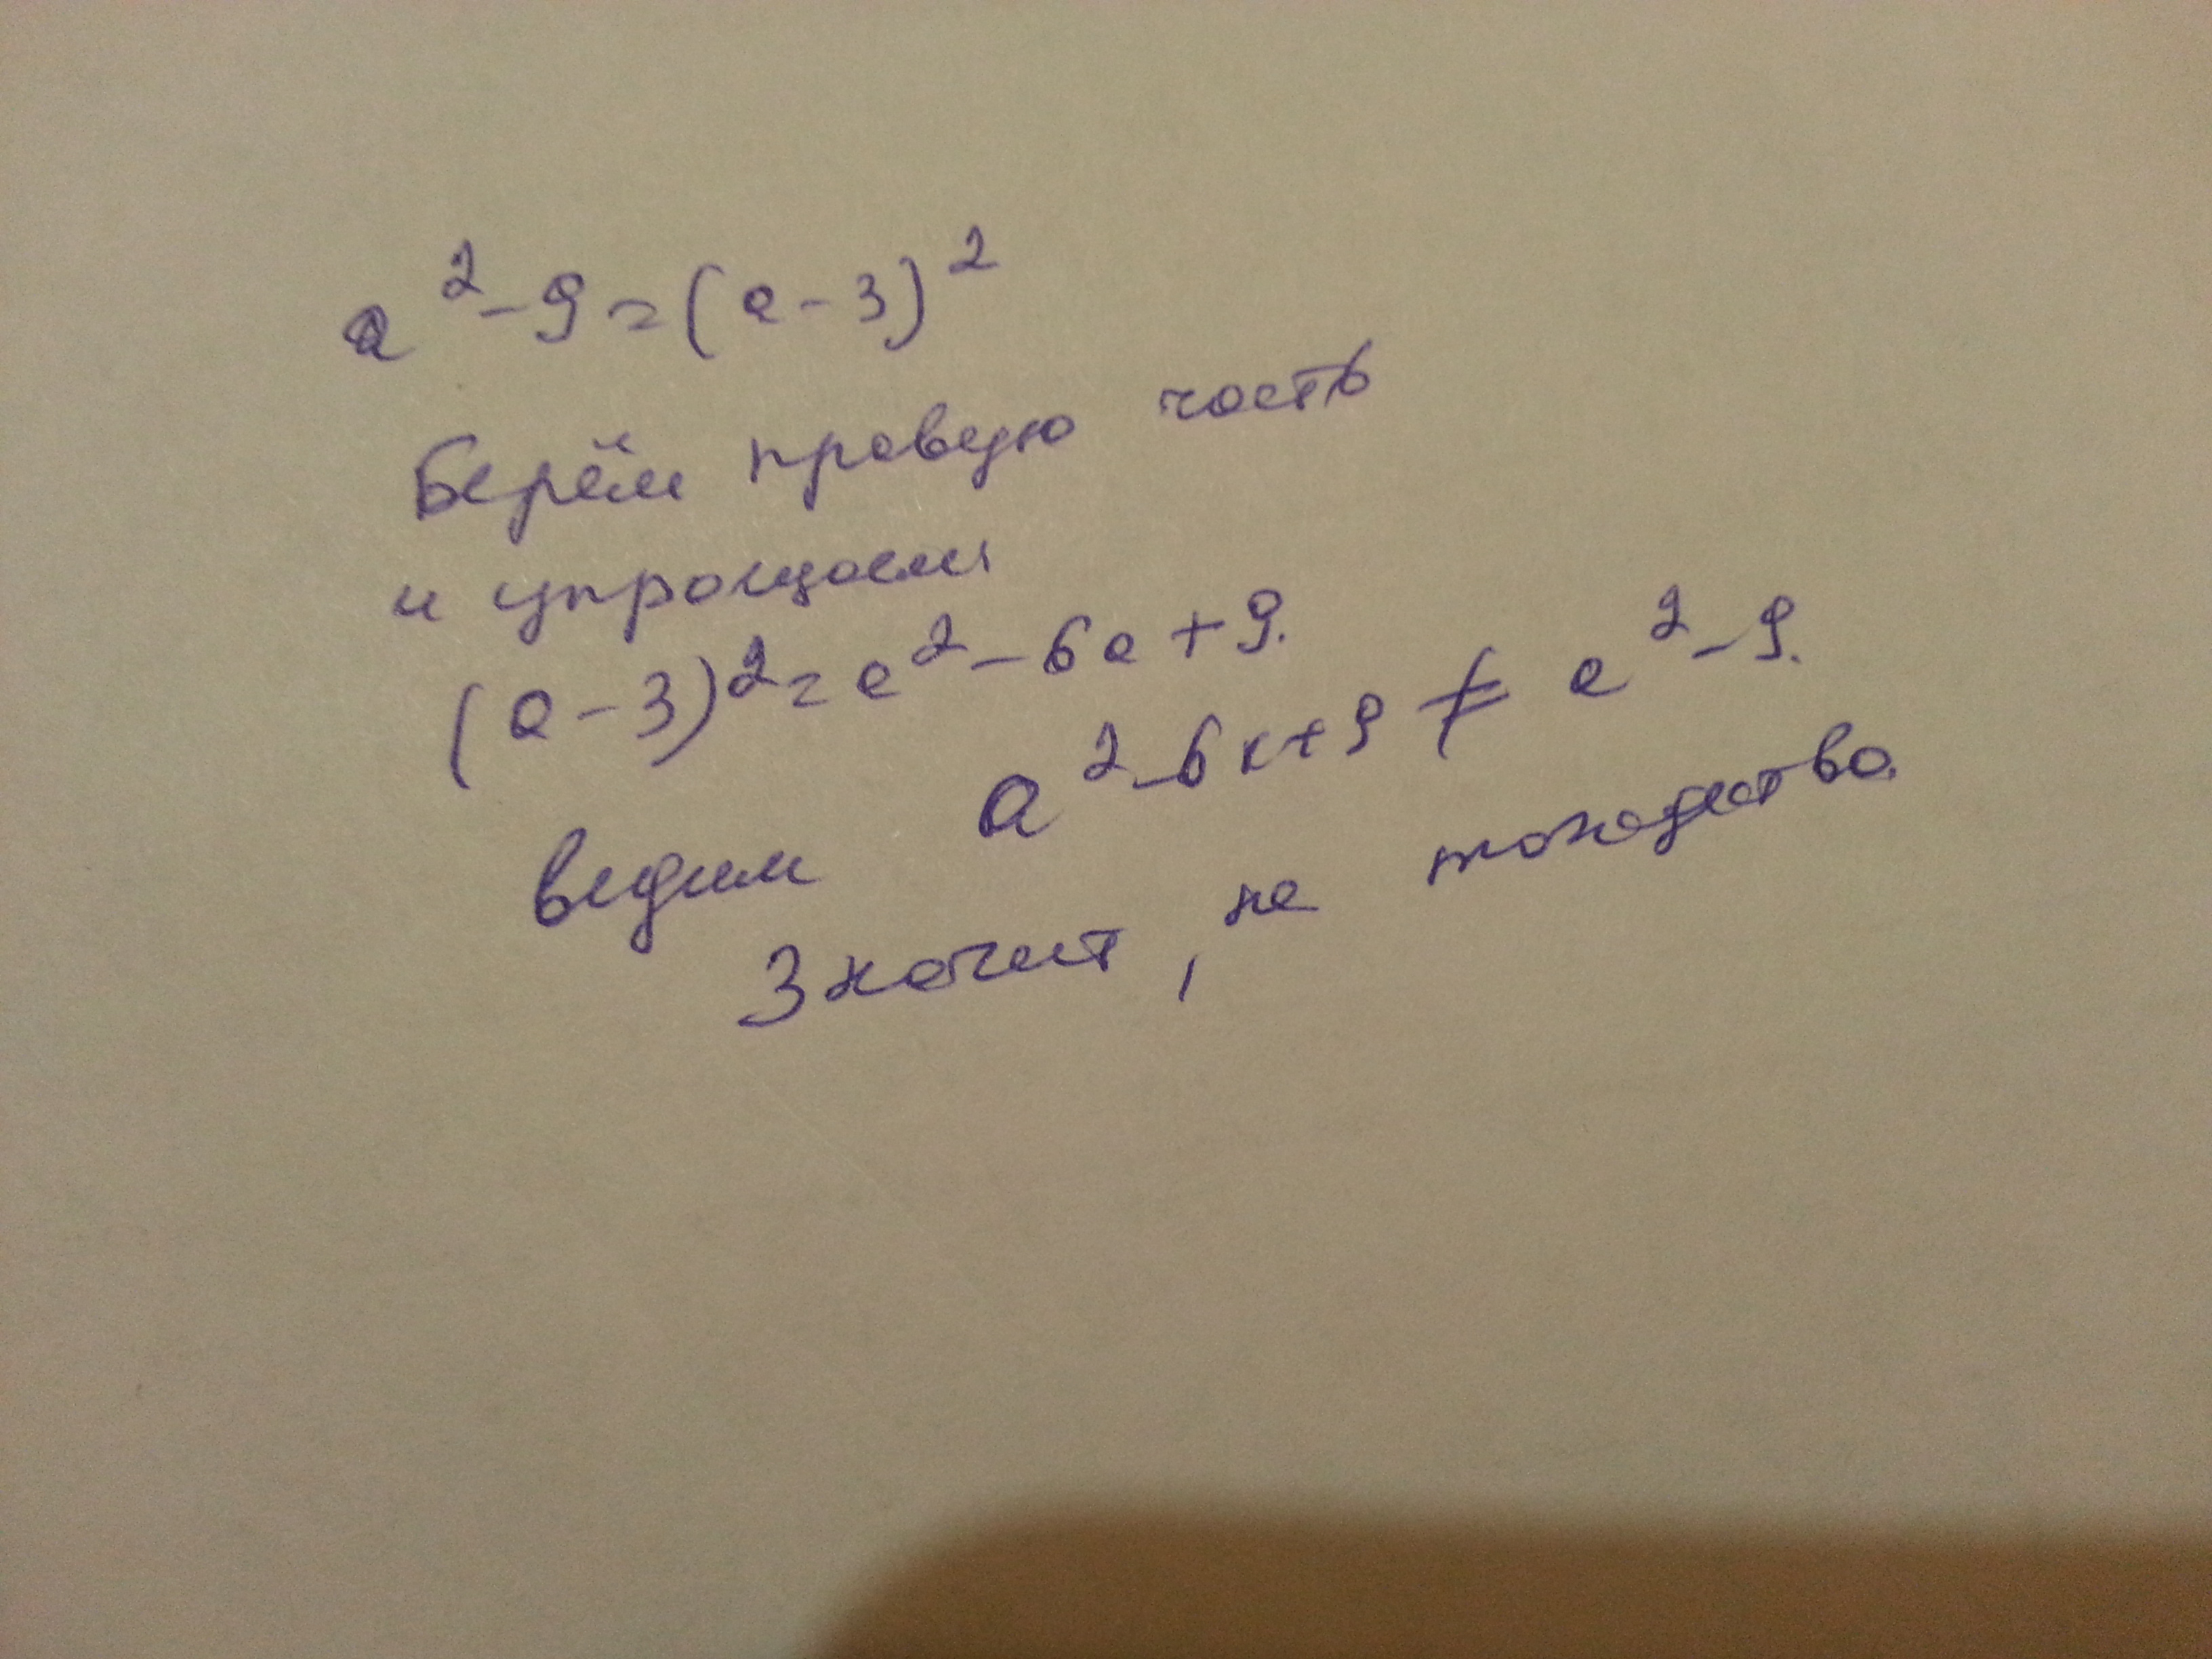 a² - 9 = (a - 3)²
Берём правую часть
и упрощаем
(a - 3)² = a² - 6a + 9.
видим a² - 6x + 9 ≠ a² - 9.
Значит, не тождество.